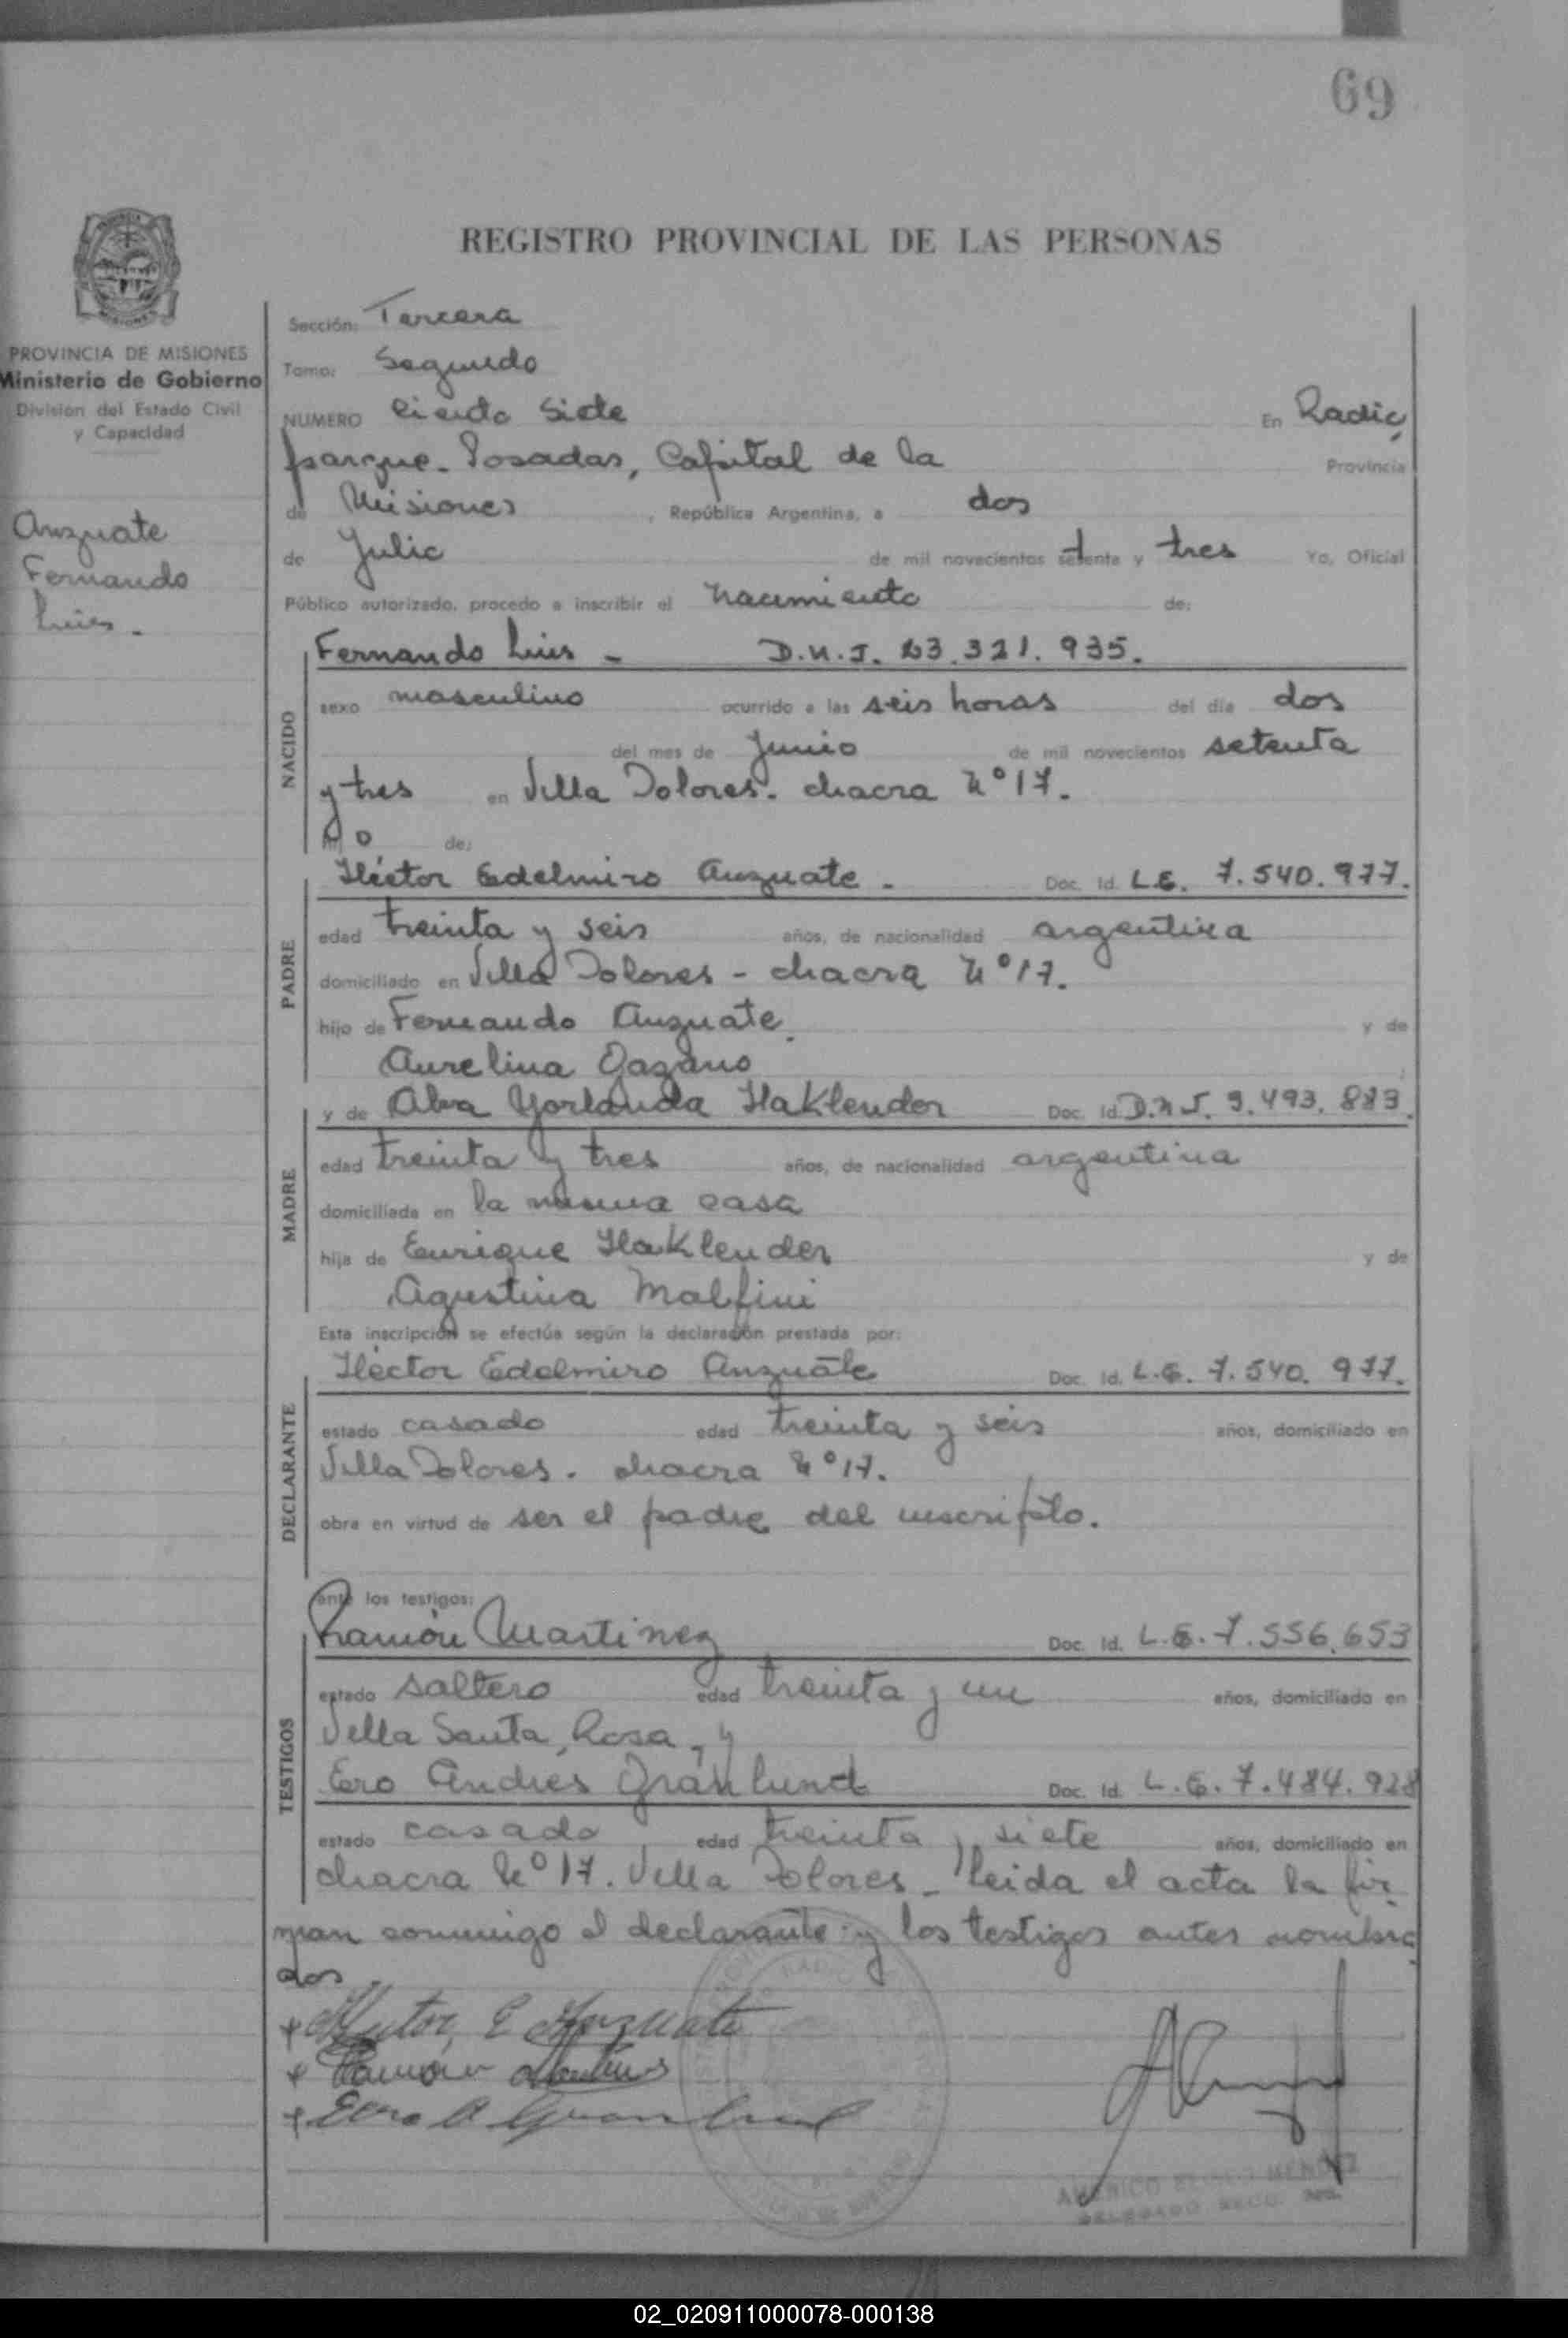 69
REGISTRO PROVINCIAL DE LAS PERSONAS
PROVINCIA DE MISIONES
Ministerio de Gobierno
División del Estado Civil
y Capacidad
Anzuate
Fernando
Luis.-
Sección: Tercera
Tomo: Segundo
NUMERO Ciento Siete En Radio
parque. Posadas, Capital de la Provincia
de Misiones, República Argentina, a dos
de Julio de mil novecientos setenta y tres Yo, Oficial
Público autorizado, procedo a inscribir el nacimiento de:
NACIDO
Fernando Luis - D.N.I. 23.321.935.
sexo masculino ocurrido a las seis horas del día dos
del mes de Junio de mil novecientos setenta
y tres en Villa Dolores. chacra Nº 17.
hijo de:
PADRE
Héctor Edelmiro Anzuate. Doc. Id. L.E. 7.540.977.
edad treinta y seis años, de nacionalidad argentina
domiciliado en Villa Dolores - chacra Nº 17.
hijo de Fernando Anzuate. y de
Aurelina
MADRE
y de Alba Yorlanda Haklender Doc. Id. D.N.I. 9.493.883.
edad treinta y tres años, de nacionalidad argentina
domiciliada en la misma casa
hija de Enrique Haklender y de
Agustina Malfini
Esta inscripción se efectúa según la declaración prestada por:
DECLARANTE
Héctor Edelmiro Anzuate Doc. Id. L.E. 7.540.977.
estado casado edad treinta y seis años, domiciliado en
Villa Dolores. chacra Nº 17.
obra en virtud de ser el padre del inscripto.
ante los testigos:
TESTIGOS
Ramón Martinez Doc. Id. L.E. 7.556.653
estado soltero edad treinta y un años, domiciliado en
Villa Santa Rosa, y
Ero Andres Granlund Doc. Id. L.E. 7.484.928
estado casado edad treinta y siete años, domiciliado en
chacra Nº 17. Villa Dolores - leida el acta la fir
man conmigo el declarante y los testigos antes nombra
dos
+ Hector E Anzuate
+ Ramón Martines
+ Ero A Granlund
02_020911000078-000138